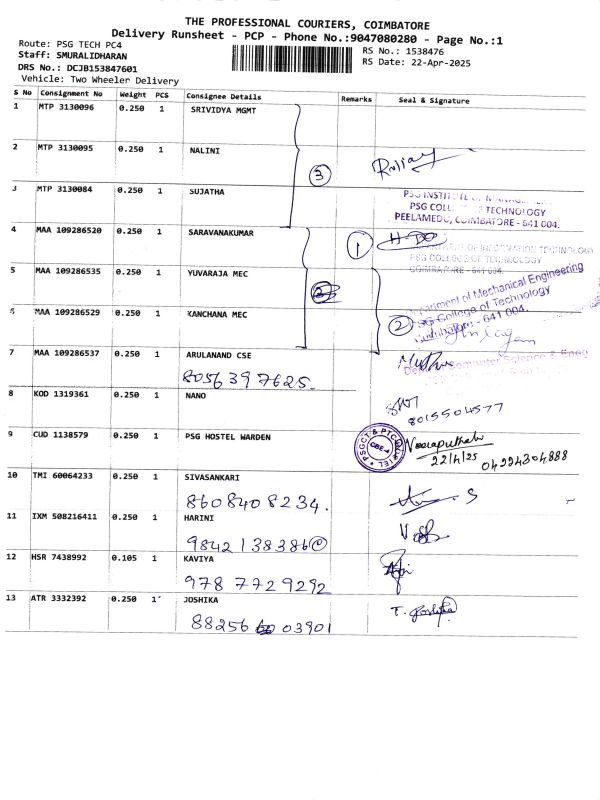 THE PROFESSIONAL COURIERS, COIMBATORE
Delivery Runsheet - PCP - Phone No.:9047080280 - Page No.:1
Route: PSG TECH PC4
RS No.: 1538476
Staff: SMURALIDHARAN
RS Date: 22-Apr-2025
DRS No.: DCJB153847601
Vehicle: Two Wheeler Delivery
S No Consignment No Weight PCS Consignee Details Remarks Seal & Signature
1 MTP 3130096 0.250 1 SRIVIDYA MGMT
2 MTP 3130095 0.250 1 NALINI
3
3 MTP 3130084 0.250 1 SUJATHA
PSG INSTITUTE OF
PSG COLLEGE OF TECHNOLOGY
PEELAMEDU, COIMBATORE - 641 004.
4 MAA 109286520 0.250 1 SARAVANAKUMAR
1
OF INFORMATION TECHNOLOGY
PSG COLLEGE OF TECHNOLOGY
COIMBATORE - 641 004.
5 MAA 109286535 0.250 1 YUVARAJA MEC
Department of Mechanical Engineering
PSG College of Technology
Coimbatore - 641 004.
6 MAA 109286529 0.250 1 KANCHANA MEC
2
7 MAA 109286537 0.250 1 ARULANAND CSE
8056397625.
Computer Science & Engg
8 KOD 1319361 0.250 1 NANO
8015504577
9 CUD 1138579 0.250 1 PSG HOSTEL WARDEN
22/4/25 04294304888
10 TMI 60064233 0.250 1 SIVASANKARI
8608408234.
11 IXM 508216411 0.250 1 HARINI
9842138386
12 HSR 7438992 0.105 1 KAVIYA
978 7729292
13 ATR 3332392 0.250 1 JOSHIKA
88256 03901